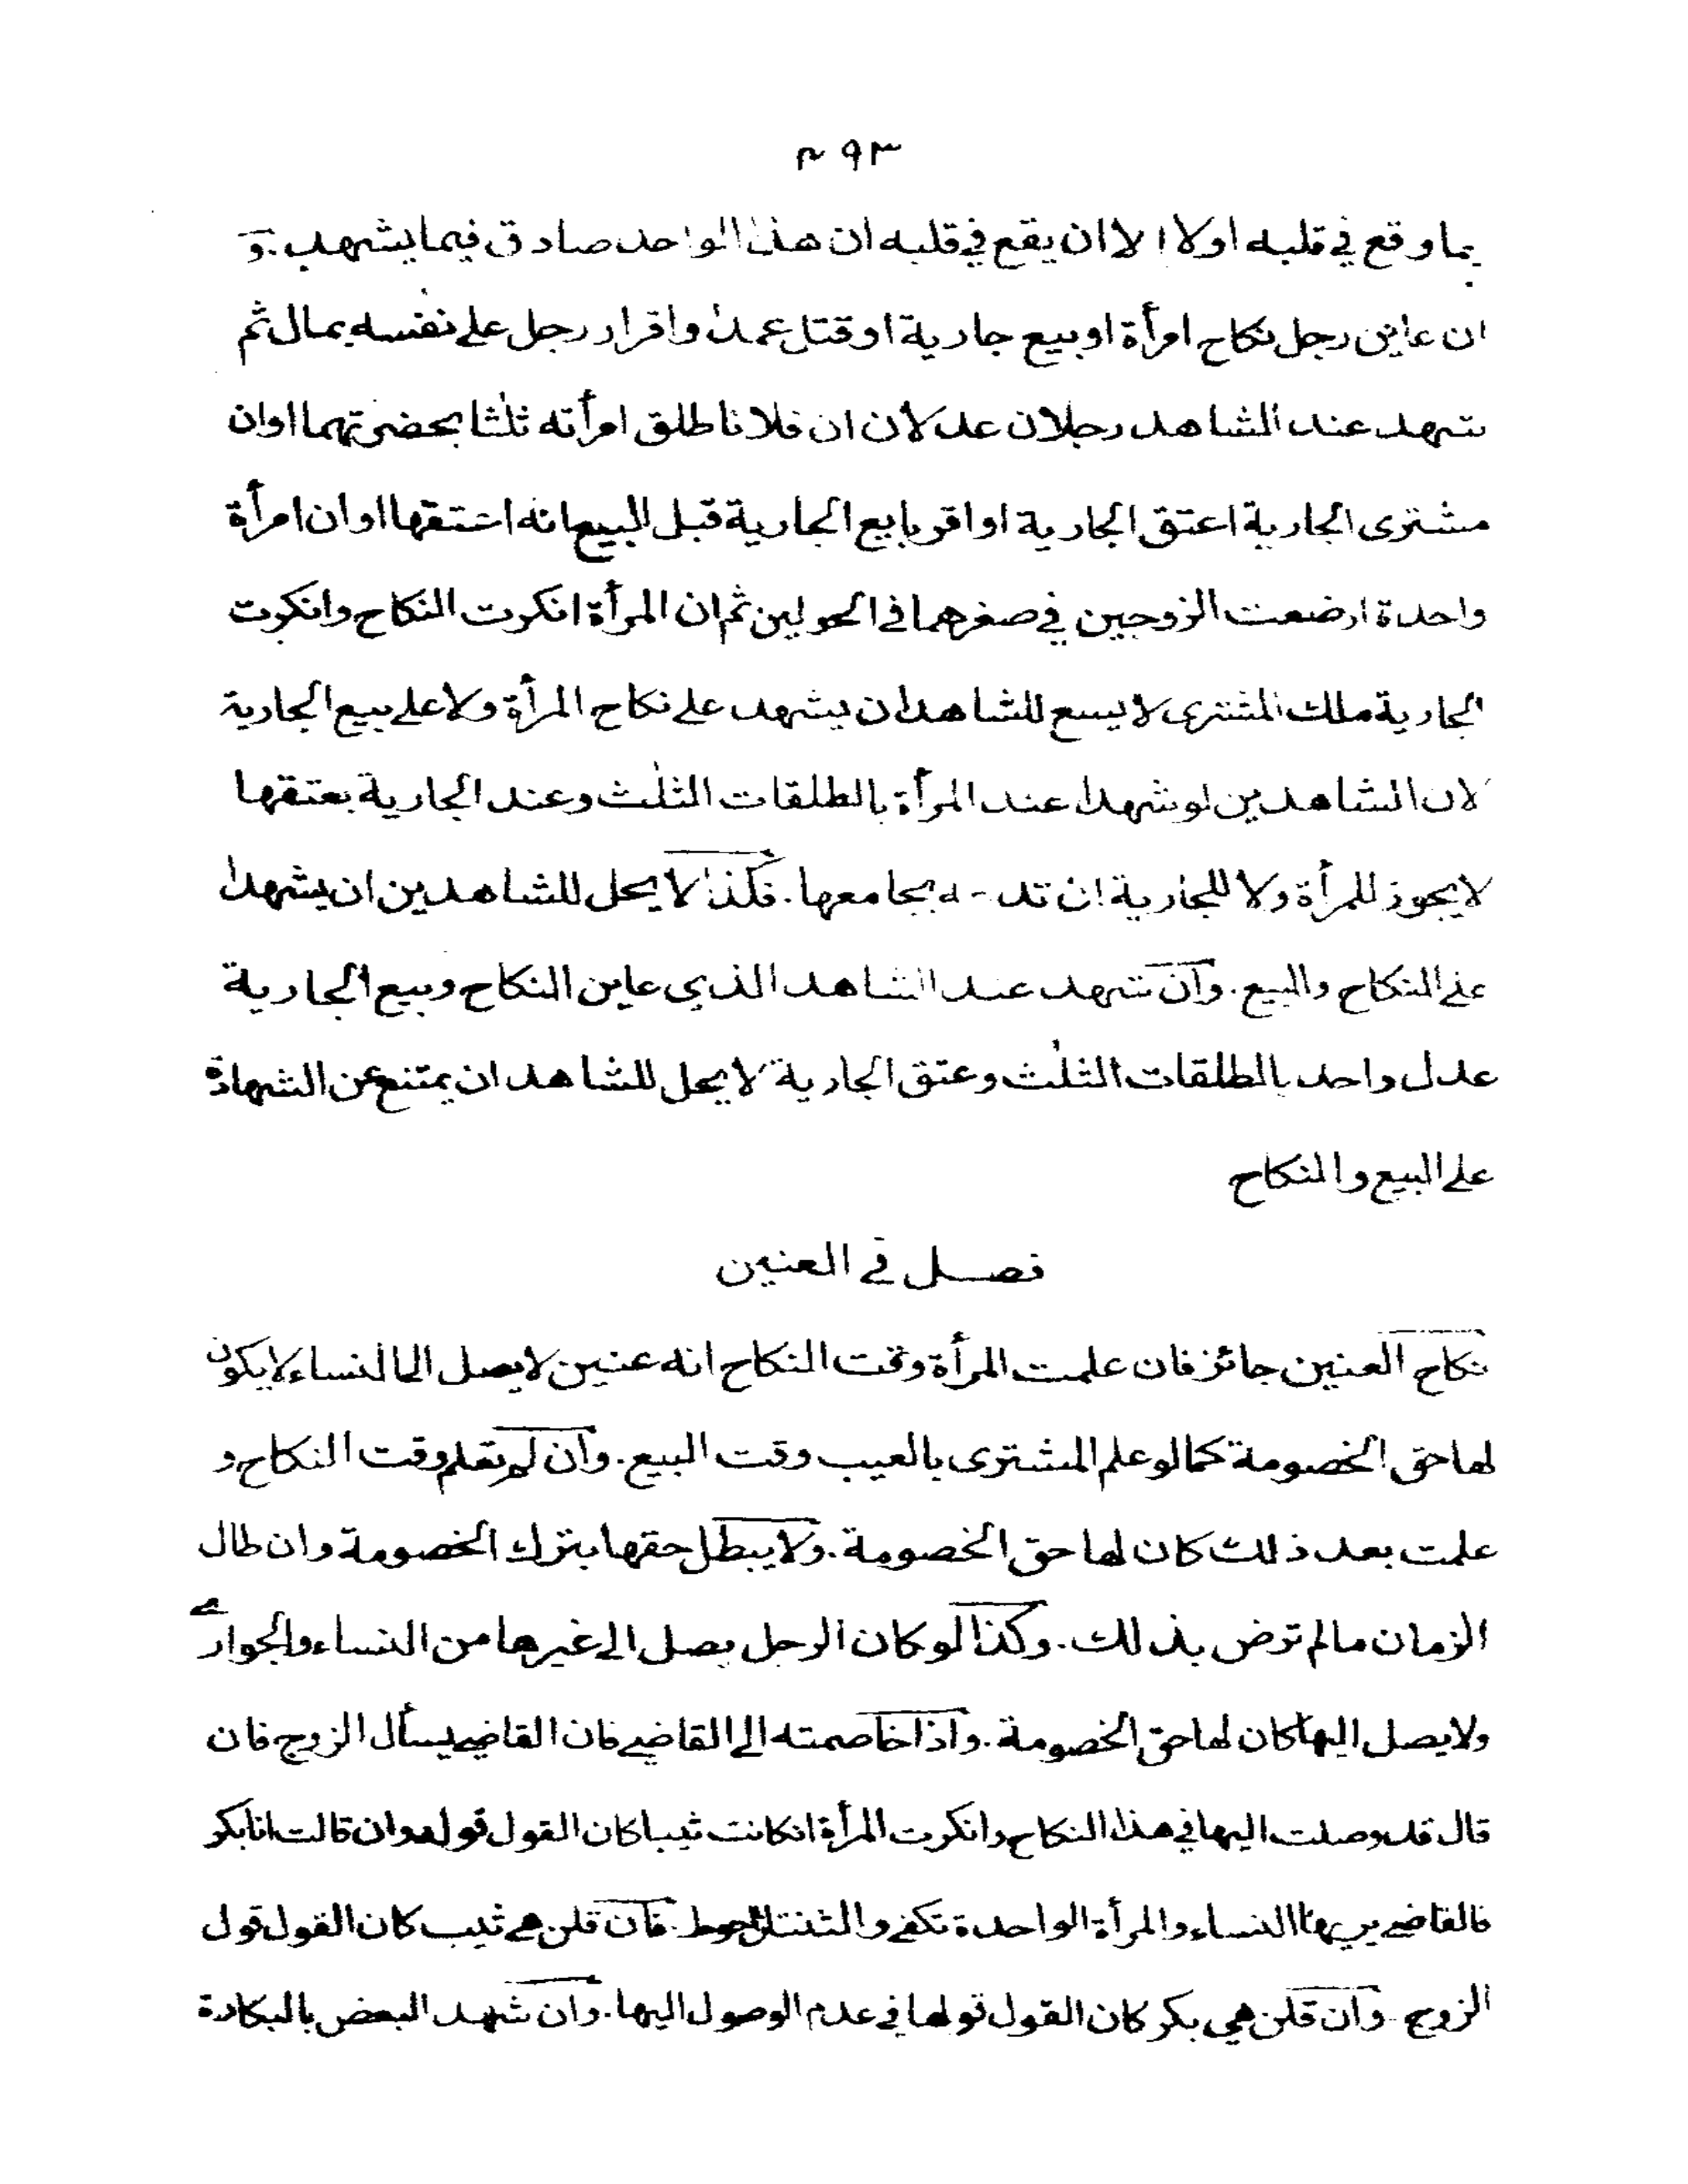 ٤٩٣
بما وقع في قلبه اولا الا ان يقع في قلبه ان هذا الواحد صادق فيما يشهد به و
ان عاين رجل نكاح امرأة او بيع جارية او قتل عمدا واقرار رجل على نفسه بمال ثم
شهد عند الشاهد رجلان عدلان ان فلانا طلق امرأته ثلثا بحضرتهما اوان
مشترى الجارية اعتق الجارية او اقر بايع الجارية قبل البيع انه اعتقها اوان امرأة
واحدة ارضعت الزوجين في صغرهما في الحولين ثم ان المرأة انكرت النكاح وانكرت
الجارية ملك المشترى لا يسع للشاهد ان يشهد على نكاح المرأة ولا على بيع الجارية
لان الشاهدين لو شهدا عند المرأة بالطلقات الثلث وعند الجارية بعتقها
لا يجوز للمرأة ولا للجارية ان يجامعها. فكذا لا يحل للشاهدين ان يشهدا
على النكاح والبيع. وان شهد عند الشاهد الذي عاين النكاح وبيع الجارية
عدل واحد بالطلقات الثلث وعتق الجارية لا يحل للشاهد ان يمتنع عن الشهادة
على البيع والنكاح
فصل في العنين
نكاح العنين جائز فان علمت المرأة وقت النكاح انه عنين لا يصل الى النساء لا يكون
لها حق الخصومة كما لو علم المشترى بالعيب وقت البيع. وان لم تعلم وقت النكاح و
علمت بعد ذلك كان لها حق الخصومة. ولا يبطل حقها بترك الخصومة وان طال
الزمان ما لم ترض بذلك. وكذا لو كان الرجل يصل الى غيرها من النساء والجوارى
ولا يصل اليها كان لها حق الخصومة. واذا خاصمته الى القاضي فان القاضي يسأل الزوج فان
قال قد وصلت اليها في هذا النكاح وانكرت المرأة انكانت ثيبا كان القول قوله وان قالت انا بكر
فالقاضي يريها النساء والمرأة الواحدة تكفي والثنتان احوط. فان قلن هي ثيب كان القول قول
الزوج. وان قلن هي بكر كان القول قولها في عدم الوصول اليها. وان شهد البعض بالبكارة